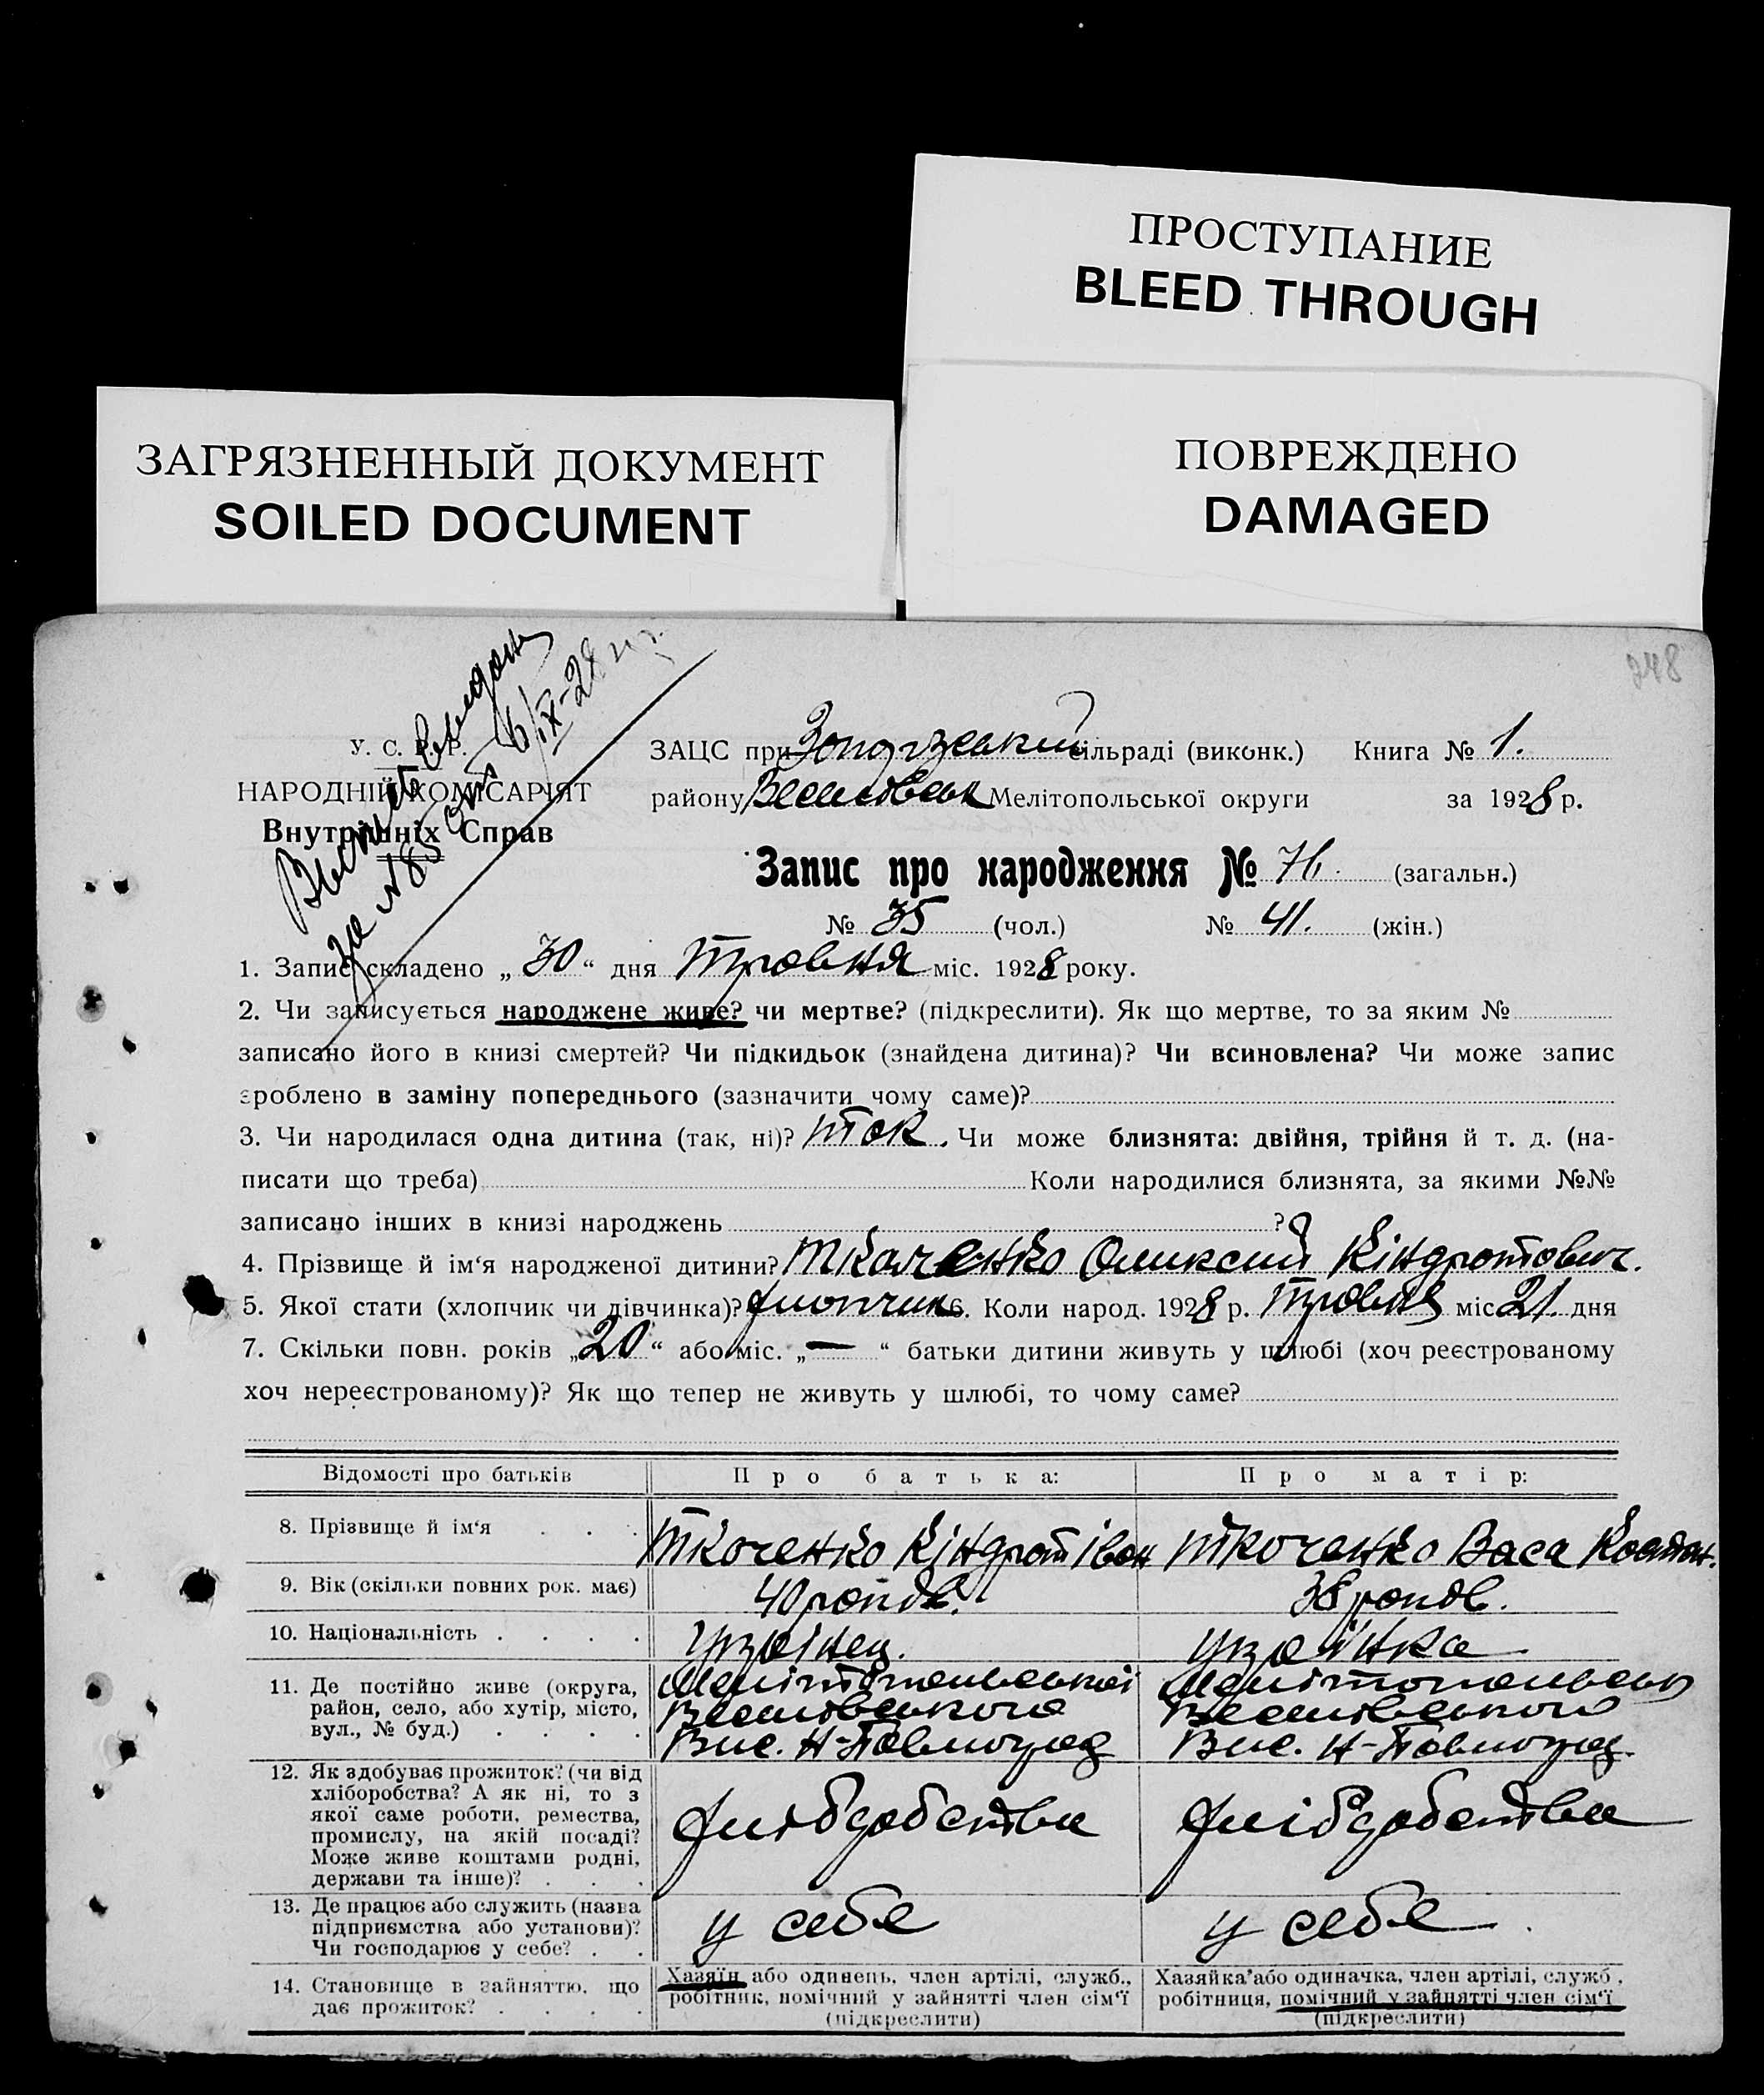 ПРОСТУПАНИЕ
BLEED THROUGH
ПОВРЕЖДЕНО
DAMAGED
ЗАГРЯЗНЕННЫЙ ДОКУМЕНТ
SOILED DOCUMENT
248
за №85
У. С. Р. Р.
НАРОДНІЙ КОМІСАРІЯТ
Внутрішніх Справ
ЗАЦС при сільраді (виконк.) Книга № 1.
району Веселовськ Мелітопольської округи за 1928 р.
Запис про народження № 76. (загальн.)
№ 35 (чол.) № 41. (жін.)
1. Запис складено „ 30 “ дня Травня міс. 1928 року.
2. Чи записується народжене живе? чи мертве? (підкреслити). Як що мертве, то за яким №
записано його в книзі смертей? Чи підкидьок (знайдена дитина)? Чи всиновлена? Чи може запис
зроблено в заміну попереднього (зазначити чому саме)?
3. Чи народилася одна дитина (так, ні)? так. Чи може близнята: двійня, трійня й т. д. (на-
писати що треба) Коли народилися близнята, за якими №№
записано інших в книзі народжень ?
4. Прізвище й ім‘я народженої дитини? Ткаченко Оликсий Кіндратович.
5. Якої стати (хлопчик чи дівчинка)? хлопчик 6. Коли народ. 1928 р. Травня міс. 21. дня
7. Скільки повн. років „ 20 “ або міс. „ — “ батьки дитини живуть у шлюбі (хоч реєстрованому
хоч нереєстрованому)? Як що тепер не живуть у шлюбі, то чому саме?
Відомості про батьків Про батька: Про матір:
8. Прізвище й ім‘я Ткаченко Кіндрат Іван Ткаченко Васа Костан.
9. Вік (скільки повних рок. має) 40 років. 38 років.
10. Національність Українец. Українка
11. Де постійно живе (округа, район, село, або хутір, місто, вул., № буд.)
Мелітопольської Мелітопольськ
Веселовського Веселовського
Вис. Н-Павлоград Вис. Н-Павлоград.
12. Як здобуває прожиток? (чи від
хліборобства? А як ні, то з
якої саме роботи, ремества,
промислу, на якій посаді?
Може живе коштами родні,
держави та інше)?
хліборобства хліборобства
13. Де працює або служить (назва
підприємства або установи)?
Чи господарює у себе?
у себе у себе.
14. Становище в зайняттю, що
дає прожиток?
Хазяїн або одинець, член артілі, служб.,
робітник, помічний у зайнятті член сім‘ї
(підкреслити)
Хазяйка або одиначка, член артілі, служб.,
робітниця, помічний у зайнятті член сім‘ї
(підкреслити)